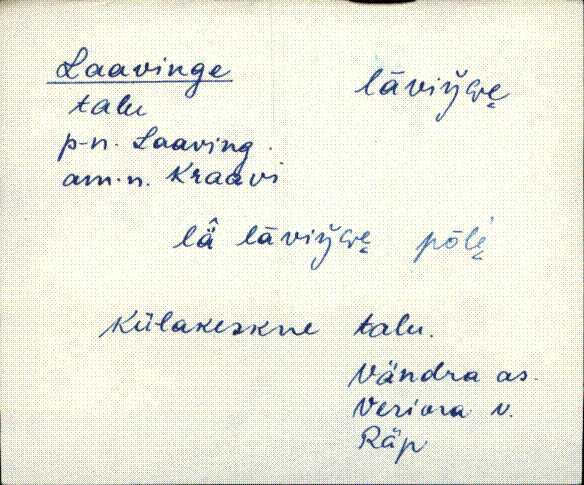 Laavinge lāviŋ̆Gę
talu
p-n. Laaving.
am.n. Kraavi
lä̂ lāviŋ̆Gę pōlę́
Külakeskne talu.
Vändra as.
Veriora v.
Räp